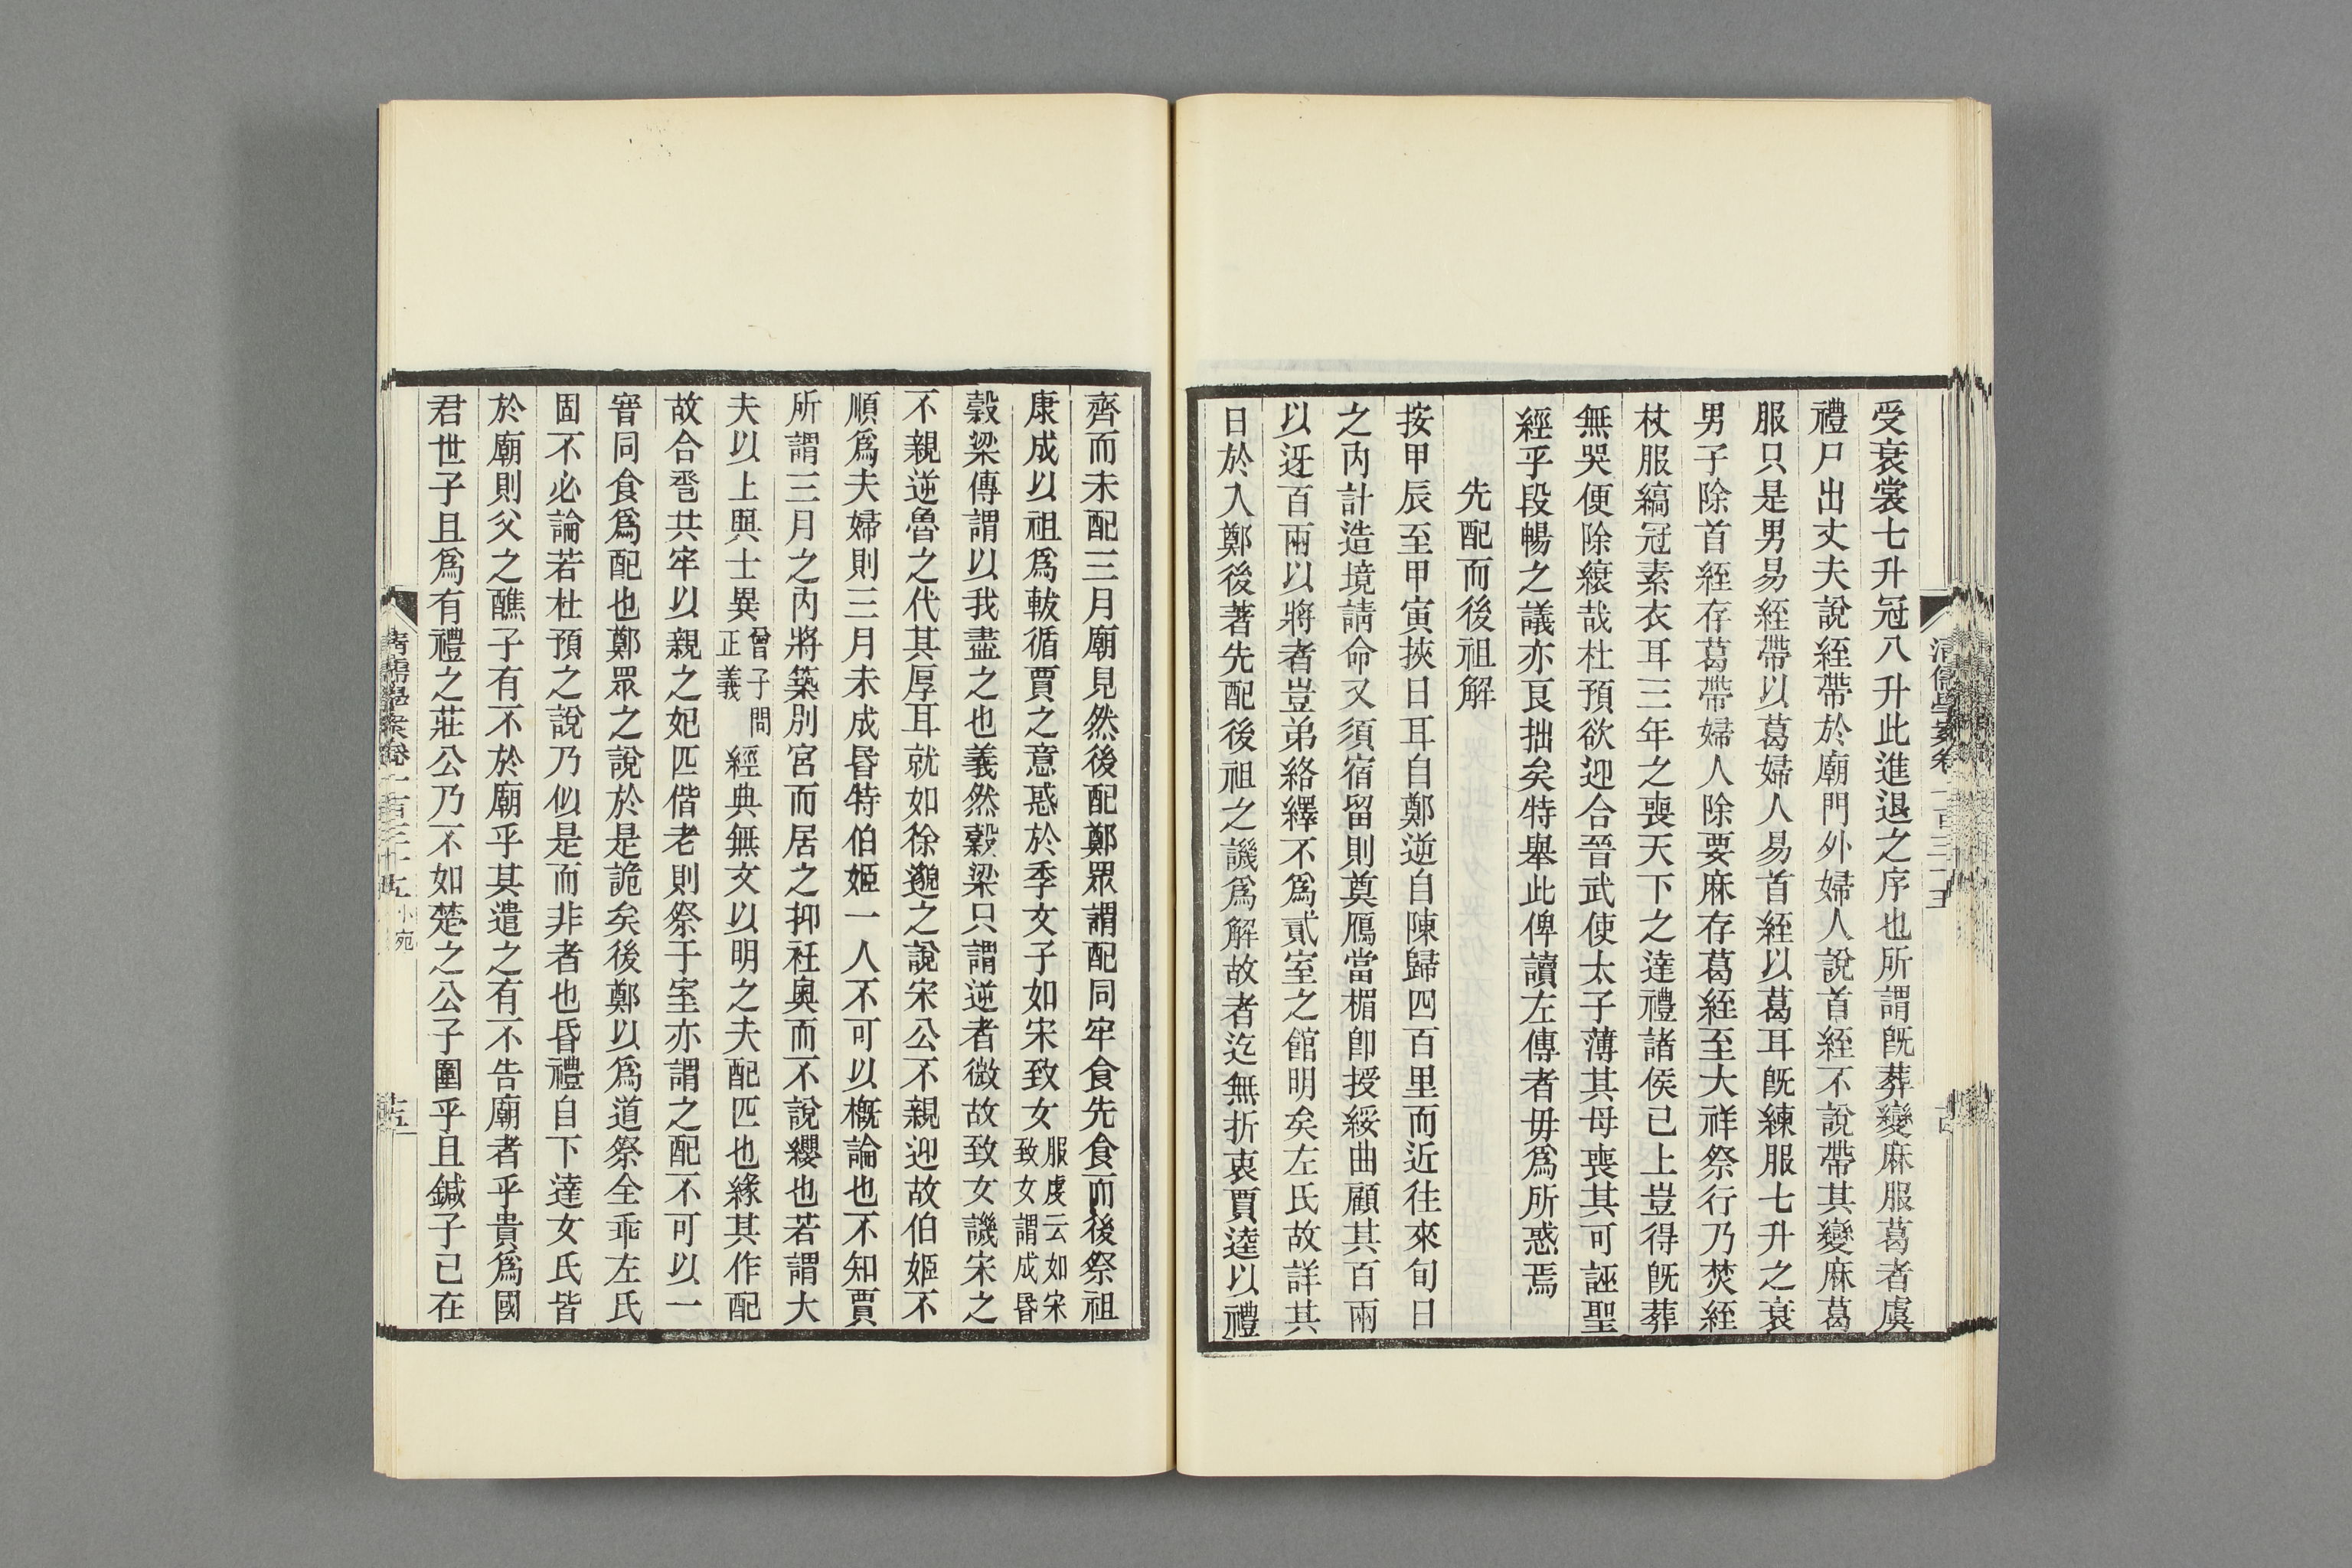 受衰裳七升冠八升此進退之序也所謂旣葬變麻服葛者虞
禮尸出丈夫說絰帶於廟門外婦人說首絰不說帶其變麻葛
服只是男易絰帶以葛婦人易首絰以葛耳旣練服七升之衰
男子除首絰存葛帶婦人除要麻存葛絰至大祥祭行乃焚絰
杖服縞冠素衣耳三年之喪天下之達禮諸侯已上豈得旣葬
無哭便除縗哉杜預欲迎合晉武使太子薄其母喪其可誣聖
經乎段暢之議亦艮拙矣特舉此俾讀左傳者毋爲所惑焉
先配而後祖解
按甲辰至甲寅挾日耳自鄭逆自陳歸四百里而近往來旬日
之內計造境請命又須宿留則奠鴈當楣卽授綏曲顧其百兩
以迓百兩以將者豈弟絡繹不爲貳室之館明矣左氏故詳其
日於入鄭後著先配後祖之譏爲解故者迄無折衷賈逵以禮
齊而未配三月廟見然後配鄭眾謂配同牢食先食而後祭祖
康成以祖爲軷循賈之意惑於季文子如宋致女服虔云如宋致女謂成昏
穀梁傳謂以我盡之也義然穀梁只謂逆者微故致女譏宋之
不親逆魯之代其厚耳就如徐邈之說宋公不親迎故伯姬不
順爲夫婦則三月未成昏特伯姬一人不可以槪論也不知賈
所謂三月之內將築別宮而居之抑衽奧而不說纓也若謂大
夫以上與士異曾子問正義經典無文以明之夫配匹也緣其作配
故合巹共牢以親之妃匹偕老則祭于室亦謂之配不可以一
宵同食爲配也鄭眾之說於是詭矣後鄭以爲道祭全乖左氏
固不必論若杜預之說乃似是而非者也昏禮自下達女氏皆
於廟則父之醮子有不於廟乎其遣之有不告廟者乎貴爲國
君世子且爲有禮之莊公乃不如楚之公子圍乎且鍼子已在
清儒學案卷一百三十五 小宛